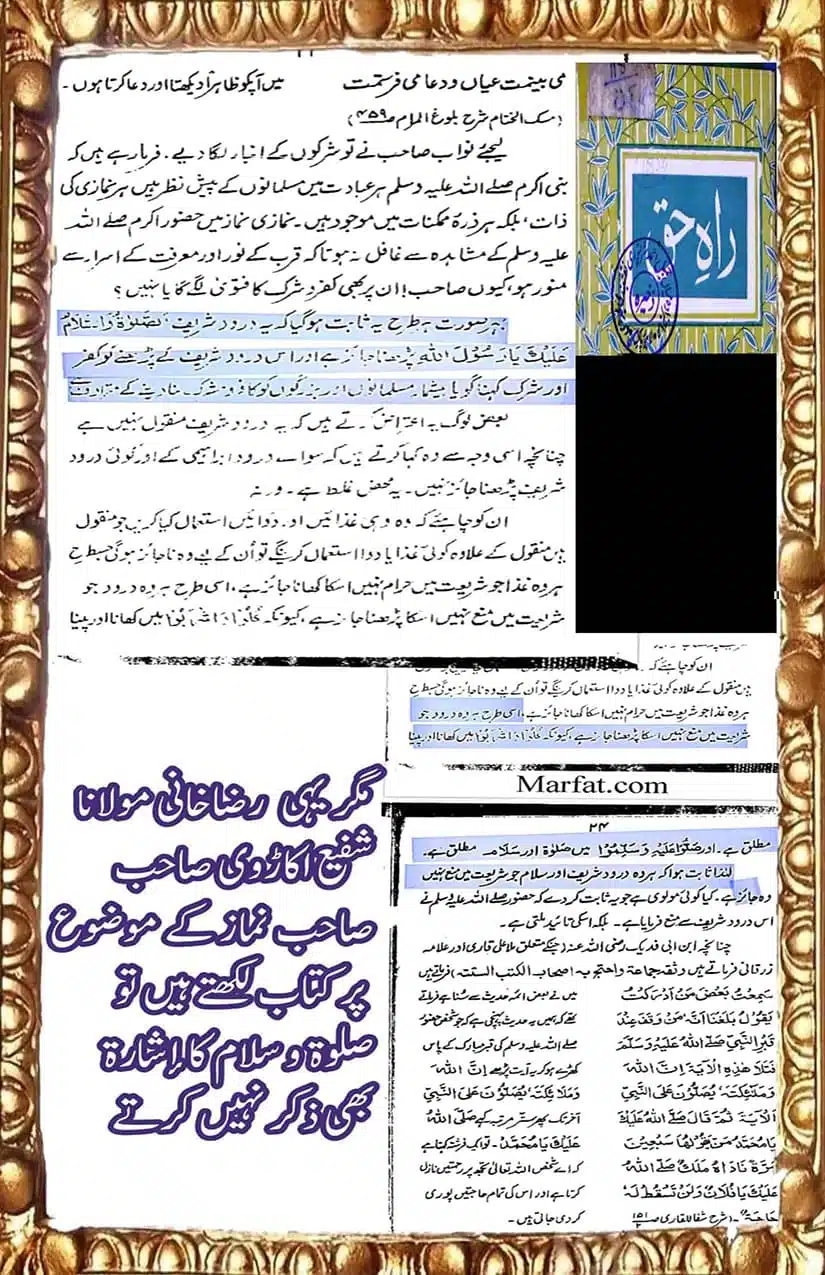 می بینمت عیاں و دعا می فرستمت میں آپکو ظاہراً دیکھتا اور دعا کرتا ہوں۔
(مسک الختام شرح بلوغ المرام ص۴۵۹)
لیجئے نواب صاحب نے تو شرکوں کے انبار لگا دیے۔ فرما رہے ہیں کہ
نبی اکرم صلے اللہ علیہ وسلم ہر عبادت میں مسلمانوں کے پیش نظر ہیں ہر نمازی کی
ذات، بلکہ ہر ذرۂ ممکنات میں موجود ہیں۔ نمازی نماز میں حضور اکرم صلے اللہ
علیہ وسلم کے مشاہدہ سے غافل نہ ہو تاکہ قرب کے نور اور معرفت کے اسرار سے
منور ہو، کیوں صاحب! ان پر بھی کفر و شرک کا فتویٰ لگے گا یا نہیں؟
بہر صورت ہر طرح یہ ثابت ہو گیا کہ یہ درود شریف الصَّلٰوۃُ وَالسَّلَامُ
عَلَیْكَ یَا رَسُوْلَ اللہِ پڑھنا جائز ہے اور اس درود شریف کے پڑھنے کو کفر
اور شرک کہنا گویا بیشمار مسلمانوں اور بزرگوں کو کافر و مشرک بنا دینے کے مترادف ہے
بعض لوگ یہ اعتراض کرتے ہیں کہ یہ درود شریف منقول نہیں ہے
چنانچہ اسی وجہ سے وہ کہا کرتے ہیں کہ سوائے درود ابراہیمی کے اور کوئی درود
شریف پڑھنا جائز نہیں۔ یہ محض غلط ہے۔ ورنہ
ان کو چاہئے کہ وہ وہی غذائیں اور دوائیں استعمال کیا کریں جو منقول
ہیں منقول کے علاوہ کوئی غذا یا دوا استعمال کرینگے تو اُن کے لیے وہ ناجائز ہوگی جسطرح
ہر وہ غذا جو شریعت میں حرام نہیں اسکا کھانا جائز ہے، اسی طرح ہر وہ درود جو
شریعت میں منع نہیں اسکا پڑھنا جائز ہے، کیونکہ کُلُوْا وَاشْرَبُوْا میں کھانا اور پینا
راہِ حق
ان کو چاہئے کہ
ہیں منقول کے علاوہ کوئی غذا یا دوا استعمال کرینگے تو اُن کے لیے وہ ناجائز ہوگی جسطرح
ہر وہ غذا جو شریعت میں حرام نہیں اسکا کھانا جائز ہے، اسی طرح ہر وہ درود جو
شریعت میں منع نہیں اسکا پڑھنا جائز ہے، کیونکہ کُلُوْا وَاشْرَبُوْا میں کھانا اور پینا
Marfat.com
۲۴
مطلق ہے۔ اور صَلُّوْا عَلَیْهِ وَسَلِّمُوْا میں صلوٰۃ اور سلام مطلق ہے۔
لہٰذا ثابت ہوا کہ ہر وہ درود شریف اور سلام جو شریعت میں منع نہیں
وہ جائز ہے۔ کیا کوئی مولوی ہے جو یہ ثابت کر دے کہ حضور صلے اللہ علیہ وسلم نے
اس درود شریف سے منع فرمایا ہے۔ بلکہ اسکی تائید ملتی ہے۔
چنانچہ ابن ابی فدیک رضی اللہ عنہ (جنکے متعلق ملا علی قاری اور علامہ
زرقانی فرماتے ہیں وثقہ جماعة واحتجوبہ اصحاب الکتب الستة) فرماتے ہیں
سَمِعْتُ بَعْضَ مَنْ اَدْرَکْتُ میں نے بعض ائمہ حدیث سے سُنا ہے فرماتے
یَقُوْلُ بَلَغَنَا اَنَّہٗ مَنْ وَقَفَ عِنْدَ تھے کہ ہمیں یہ حدیث پہنچی ہے کہ جو شخص حضور
قَبْرِ النَّبِیِّ صَلَّے اللہُ عَلَیْہِ وَسَلَّمَ صلے اللہ علیہ وسلم کی قبر مبارک کے پاس
فَتَلَا هٰذِہِ الْاٰیَةَ اِنَّ اللہَ کھڑے ہو کر یہ آیت پڑھے اِنَّ اللہَ
وَمَلٰٓئِکَتَہٗ یُصَلُّوْنَ عَلَی النَّبِیِّ وَمَلَائِکَتَہٗ یُصَلُّوْنَ عَلَی النَّبِیِّ
الْاٰیَةَ ثُمَّ قَالَ صَلَّی اللہُ عَلَیْكَ آخر تک پھر ستّر مرتبہ کہے صَلَّی اللہُ
یَا مُحَمَّدُ مَنْ یَّقُوْلُهَا سَبْعِیْنَ عَلَیْكَ یَا مُحَمَّدُ۔ تو ایک فرشتہ کہتا ہے
مَرَّةً نَادَاهُ مَلَكٌ صَلَّی اللہُ کہ اے شخص اللہ تعالیٰ تجھ پر رحمتیں نازل
عَلَیْكَ یَا فُلَانُ وَلَنْ تَسْقُطَ لَہٗ کرتا ہے اور اس کی تمام حاجتیں پوری
حَاجَةٌ۔ (شرح شفا للقاری ص۱۵۱) کر دی جاتی ہیں۔
مگر یہی رضاخانی مولانا
شفیع اکاڑوی صاحب
صاحب نماز کے موضوع
پر کتاب لکھتے ہیں تو
صلوۃ و سلام کا اِشارۃ
بھی ذکر نہیں کرتے